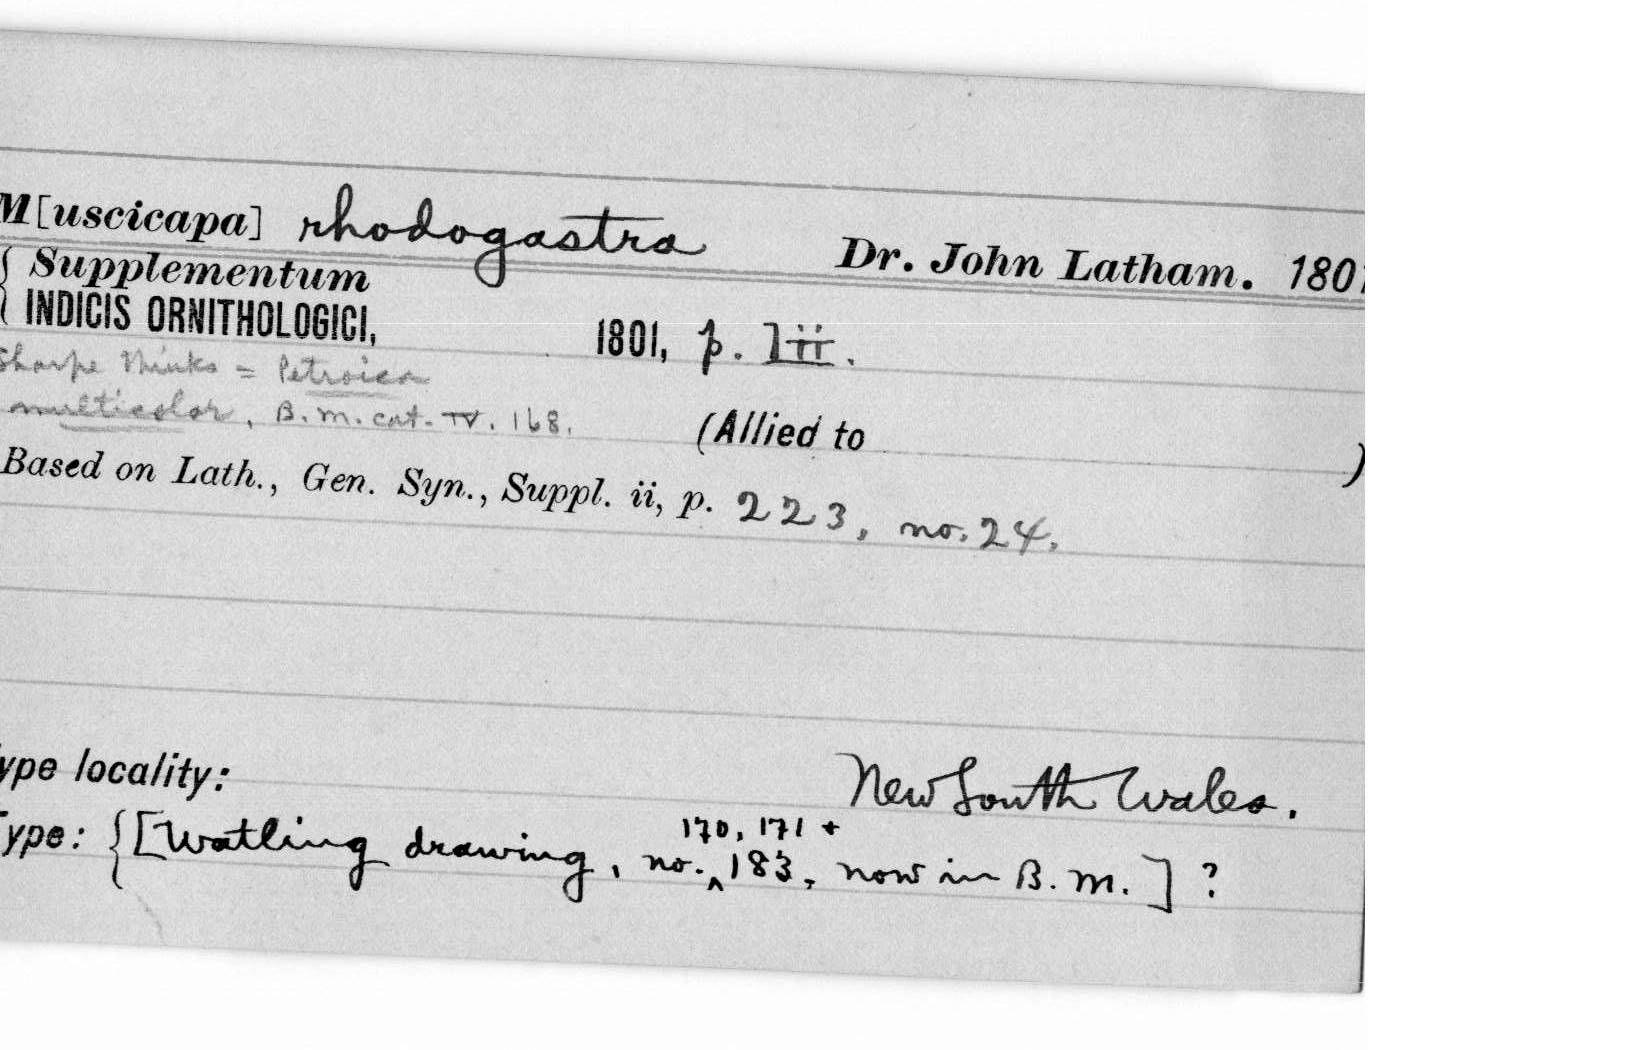 M[uscicapa] rhodogastra Dr. John Latham. 1801
{ Supplementum
INDICIS ORNITHOLOGICI, 1801, p. lii.
Sharpe thinks = Petroica
multicolor, B.M. cat. IV. 168.
(Allied to )
Based on Lath., Gen. Syn., Suppl. ii, p. 223, no. 24.
ype locality: New South Wales.
170, 171 +
Type: {[Watling drawing, no. ^ 183, now in B.M.] ?